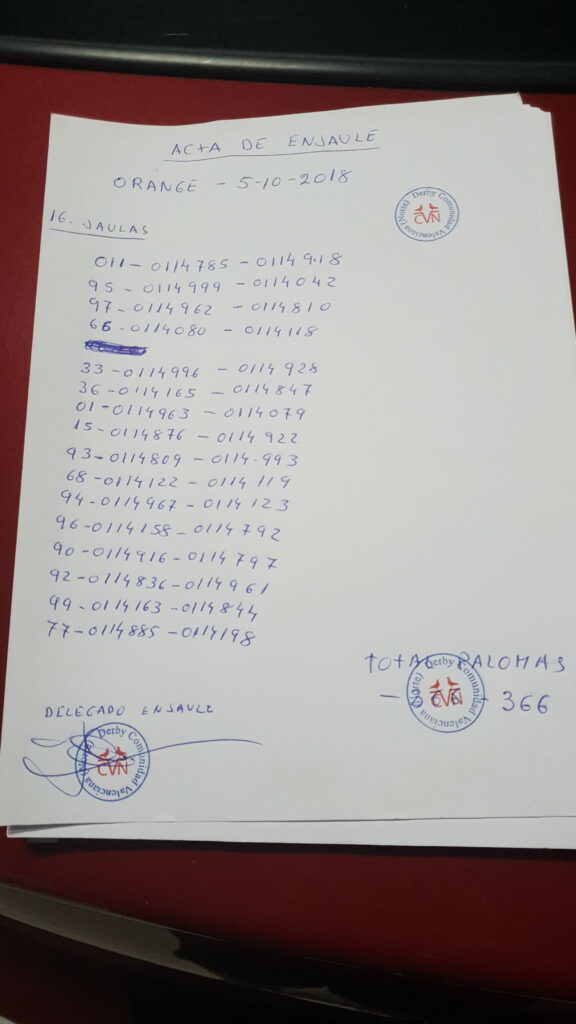 ACTA DE ENJAULE
ORANGE - 5-10-2018
Derby Comunidad Valenciana (Norte)
CVN
16. JAULAS
011 - 0114785 - 0114918
95 - 0114999 - 0114042
97 - 0114962 - 0114810
66 - 0114080 - 0114118
33 - 0114996 - 0114928
36 - 0114165 - 0114847
01 - 0114963 - 0114079
15 - 0114876 - 0114922
93 - 0114809 - 0114.993
68 - 0114122 - 0114119
94 - 0114967 - 0114123
96 - 0114158 - 0114792
90 - 0114916 - 0114797
92 - 0114836 - 0114961
99 - 0114163 - 0114844
77 - 0114885 - 0114198
TOTAL PALOMAS
- 366
Derby Comunidad Valenciana (Norte)
CVN
DELEGADO ENJAULE
Derby Comunidad Valenciana (Norte)
CVN